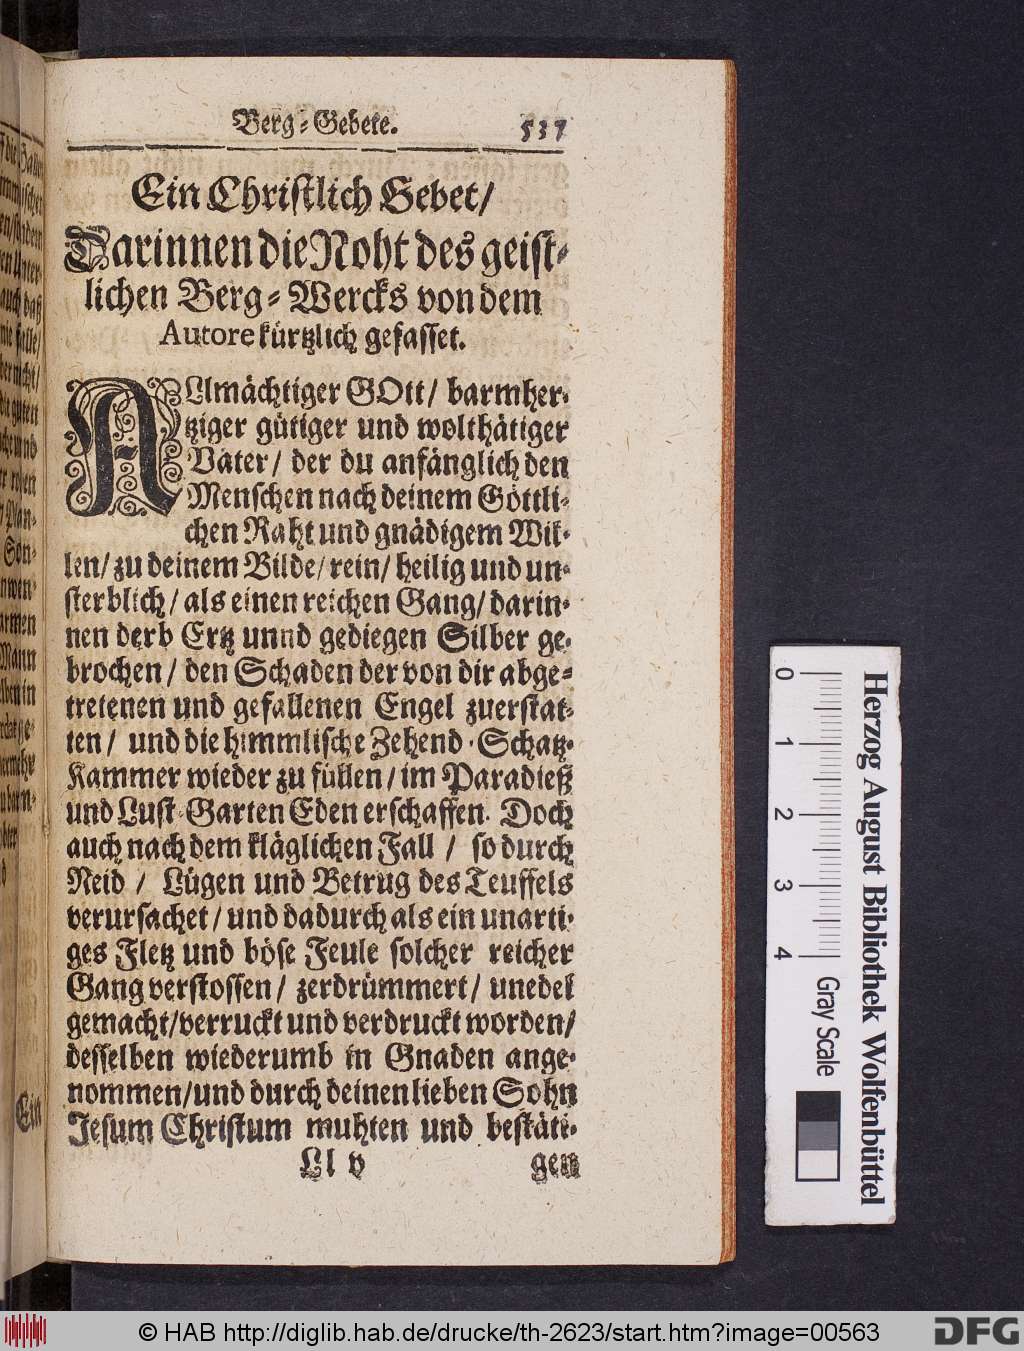 Berg-Gebete. 537
Ein Christlich Gebet/
Darinnen die Noht des geist-
lichen Berg-Wercks von dem
Autore kürtzlich gefasset.
ALlmächtiger GOtt/ barmher-
tziger gütiger und wolthätiger
Vater/ der du anfänglich den
Menschen nach deinem Göttli-
chen Raht und gnädigem Wil-
len/ zu deinem Bilde/ rein/ heilig und un-
sterblich/ als einen reichen Gang/ darin-
nen derb Ertz unnd gediegen Silber ge-
brochen/ den Schaden der von dir abge-
tretenen und gefallenen Engel zuerstat-
ten/ und die himmlische Zehend-Schatz-
Kammer wieder zu füllen/ im Paradieß
und Lust-Garten Eden erschaffen. Doch
auch nach dem kläglichen Fall / so durch
Neid / Lügen und Betrug des Teuffels
verursachet/ und dadurch als ein unarti-
ges Fletz und böse Feule solcher reicher
Gang verstossen/ zerdrümmert/ unedel
gemacht/verruckt und verdruckt worden/
desselben wiederumb in Gnaden ange-
nommen/und durch deinen lieben Sohn
Jesum Christum muhten und bestäti-
Ll v gen
Ein
0 1 2 3 4
Gray Scale
Herzog August Bibliothek Wolfenbüttel
© HAB http://diglib.hab.de/drucke/th-2623/start.htm?image=00563
DFG